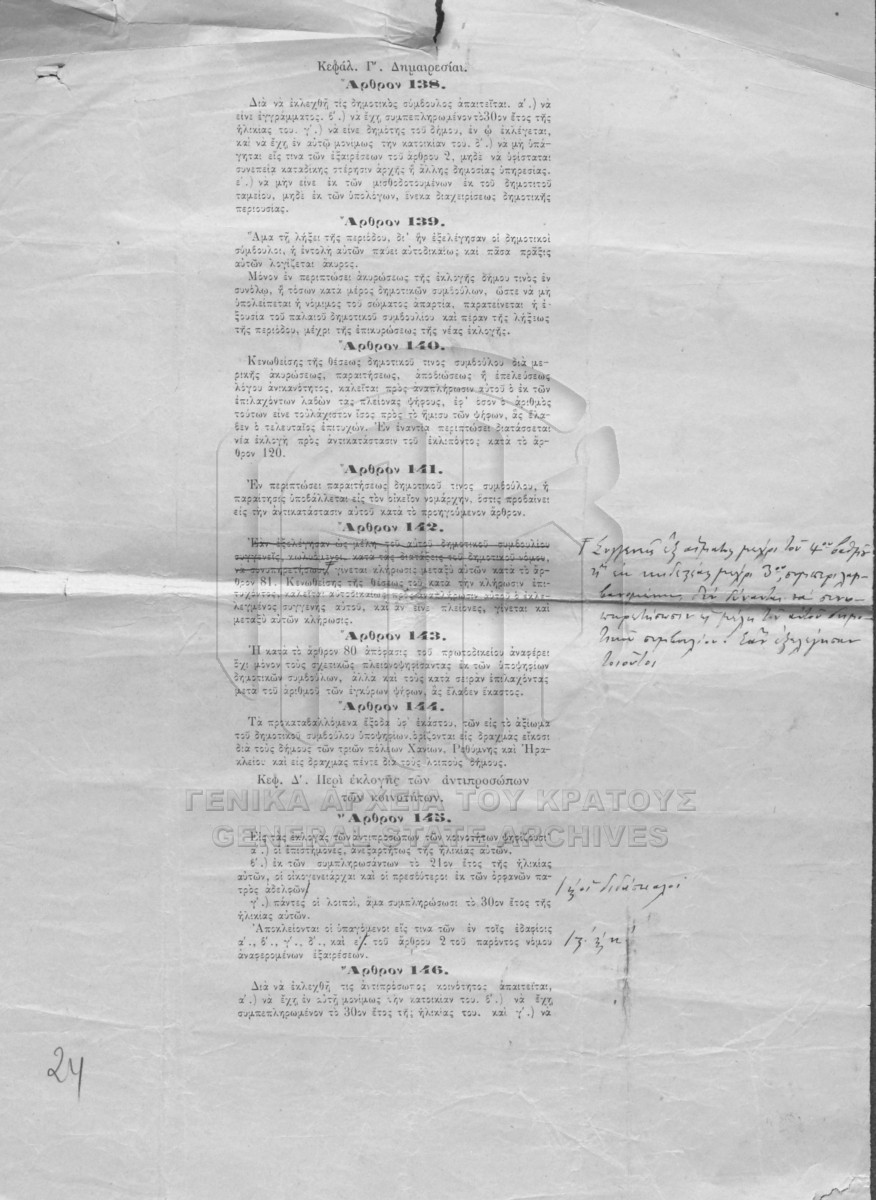 Κεφάλ. Γ'. Δημαιρεσίαι.
Ἄρθρον 138.
Διὰ νὰ ἐκλεχθῇ τὶς δημοτικὸς σύμβουλος ἀπαιτεῖται. α'.) νὰ
εἶνε ἐγγράμματος. β'.) νὰ ἔχῃ συμπεπληρωμένον τὸ 30ον ἔτος τῆς
ἡλικίας του. γ'.) νὰ εἶνε δημότης τοῦ δήμου, ἐν ᾧ ἐκλέγεται,
καὶ νὰ ἔχῃ ἐν αὐτῷ μονίμως τὴν κατοικίαν του. δ'.) νὰ μὴ ὑπά-
γηται εἴς τινα τῶν ἐξαιρέσεων τοῦ ἄρθρου 2, μηδὲ νὰ ὑφίσταται
συνεπείᾳ καταδίκης στέρησιν ἀρχῆς ἢ ἄλλης δημοσίας ὑπηρεσίας.
ε'.) νὰ μὴν εἶνε ἐκ τῶν μισθοδοτουμένων ἐκ τοῦ δημοτικοῦ
ταμείου, μηδὲ ἐκ τῶν ὑπολόγων, ἕνεκα διαχειρίσεως δημοτικῆς
περιουσίας.
Ἄρθρον 139.
Ἅμα τῇ λήξει τῆς περιόδου, δι' ἣν ἐξελέγησαν οἱ δημοτικοὶ
σύμβουλοι, ἡ ἐντολὴ αὐτῶν παύει αὐτοδικαίως καὶ πᾶσα πρᾶξις
αὐτῶν λογίζεται ἄκυρος.
Μόνον ἐν περιπτώσει ἀκυρώσεως τῆς ἐκλογῆς δήμου τινὸς ἐν
συνόλῳ, ἢ τόσων κατὰ μέρος δημοτικῶν συμβούλων, ὥστε νὰ μὴ
ὑπολείπεται ἡ νόμιμος τοῦ σώματος ἀπαρτία, παρατείνεται ἡ ἐ-
ξουσία τοῦ παλαιοῦ δημοτικοῦ συμβουλίου καὶ πέραν τῆς λήξεως
τῆς περιόδου, μέχρι τῆς ἐπικυρώσεως τῆς νέας ἐκλογῆς.
Ἄρθρον 140.
Κενωθείσης τῆς θέσεως δημοτικοῦ τινος συμβούλου διὰ με-
ρικῆς ἀκυρώσεως, παραιτήσεως, ἀποβιώσεως ἢ ἐπελεύσεως
λόγου ἀνικανότητος, καλεῖται πρὸς ἀναπλήρωσιν αὐτοῦ ὁ ἐκ τῶν
ἐπιλαχόντων λαβὼν τὰς πλείονας ψήφους, ἐφ' ὅσον ὁ ἀριθμὸς
τούτων εἶνε τοὐλάχιστον ἴσος πρὸς τὸ ἥμισυ τῶν ψήφων, ἃς ἔλα-
βεν ὁ τελευταῖος ἐπιτυχών. Ἐν ἐναντίᾳ περιπτώσει διατάσσεται
νέα ἐκλογὴ πρὸς ἀντικατάστασιν τοῦ ἐκλιπόντος κατὰ τὸ ἄρ-
θρον 120.
Ἄρθρον 141.
Ἐν περιπτώσει παραιτήσεως δημοτικοῦ τινος συμβούλου, ἡ
παραίτησις ὑποβάλλεται εἰς τὸν οἰκεῖον νομάρχην, ὅστις προβαίνει
εἰς τὴν ἀντικατάστασιν αὐτοῦ κατὰ τὸ προηγούμενον ἄρθρον.
Ἄρθρον 142.
Ἐὰν ἐξελέγησαν ὡς μέλη τοῦ αὐτοῦ δημοτικοῦ συμβουλίου
συγγενεῖς, κωλυόμενοι, κατὰ τὰς διατάξεις τοῦ δημοτικοῦ νόμου,
νὰ συνυπηρετήσωσι, γίνεται κλήρωσις μεταξὺ αὐτῶν κατὰ τὸ ἄρ-
θρον 81. Κενωθείσης τῆς θέσεως τοῦ κατὰ τὴν κλήρωσιν ἐπι-
τυχόντος, καλεῖται αὐτοδικαίως πρὸς ἀναπλήρωσιν αὐτοῦ ὁ ἐκ-
λεγμένος συγγενὴς αὐτοῦ, καὶ ἂν εἶνε πλείονες, γίνεται καὶ
μεταξὺ αὐτῶν κλήρωσις.
Συγγενεῖς ἐξ αἵματος μέχρι τοῦ 4ου βαθμοῦ
ἢ ἐκ κηδεστίας μέχρι 3ου, συμπεριλαμ-
βανομένου, δὲν δύνανται νὰ συνυ-
πηρετήσωσιν ὡς μέλη τοῦ αὐτοῦ δημο-
τικοῦ συμβουλίου. Ἐὰν ἐξελέγησαν
τοιοῦτοι
Ἄρθρον 143.
Ἡ κατὰ τὸ ἄρθρον 80 ἀπόφασις τοῦ πρωτοδικείου ἀναφέρει
ὄχι μόνον τοὺς σχετικῶς πλειονοψηφίσαντας ἐκ τῶν ὑποψηφίων
δημοτικῶν συμβούλων, ἀλλὰ καὶ τοὺς κατὰ σειρὰν ἐπιλαχόντας
μετὰ τοῦ ἀριθμοῦ τῶν ἐγκύρων ψήφων, ἃς ἔλαβεν ἕκαστος.
Ἄρθρον 144.
Τὰ προκαταβαλλόμενα ἔξοδα ὑφ' ἑκάστου, τῶν εἰς τὸ ἀξίωμα
τοῦ δημοτικοῦ συμβούλου ὑποψηφίων ὁρίζονται εἰς δραχμὰς εἴκοσι
διὰ τοὺς δήμους τῶν τριῶν πόλεων Χανίων, Ρεθύμνης καὶ Ἡρα-
κλείου καὶ εἰς δραχμὰς πέντε διὰ τοὺς λοιποὺς δήμους.
Κεφ. Δ'. Περὶ ἐκλογῆς τῶν ἀντιπροσώπων
τῶν κοινοτήτων.
ΓΕΝΙΚΑ ΑΡΧΕΙΑ ΤΟΥ ΚΡΑΤΟΥΣ
GENERAL STATE ARCHIVES
Ἄρθρον 145.
Εἰς τὰς ἐκλογὰς τῶν ἀντιπροσώπων τῶν κοινοτήτων ψηφίζουσι
α'.) οἱ ἐπιστήμονες, ἀνεξαρτήτως τῆς ἡλικίας αὐτῶν.
β'.) ἐκ τῶν συμπληρωσάντων τὸ 21ον ἔτος τῆς ἡλικίας
αὐτῶν, οἱ οἰκογενειάρχαι καὶ οἱ πρεσβύτεροι ἐκ τῶν ὀρφανῶν πα-
τρὸς ἀδελφῶν/
/ καὶ οἱ διδάσκαλοι
γ'.) πάντες οἱ λοιποί, ἅμα συμπληρώσωσι τὸ 30ον ἔτος τῆς
ἡλικίας αὐτῶν.
Ἀποκλείονται οἱ ὑπαγόμενοι εἴς τινα τῶν ἐν τοῖς ἐδαφίοις
α'., β'., γ'., δ'., καὶ ε/. τοῦ ἄρθρου 2 τοῦ παρόντος νόμου
ἀναφερομένων ἐξαιρέσεων.
Ἄρθρον 146.
Διὰ νὰ ἐκλεχθῇ τις ἀντιπρόσωπος κοινότητος ἀπαιτεῖται,
α'.) νὰ ἔχῃ ἐν αὐτῇ μονίμως τὴν κατοικίαν του. β'.) νὰ ἔχῃ
συμπεπληρωμένον τὸ 30ον ἔτος τῆς ἡλικίας του. καὶ γ'.) νὰ
24